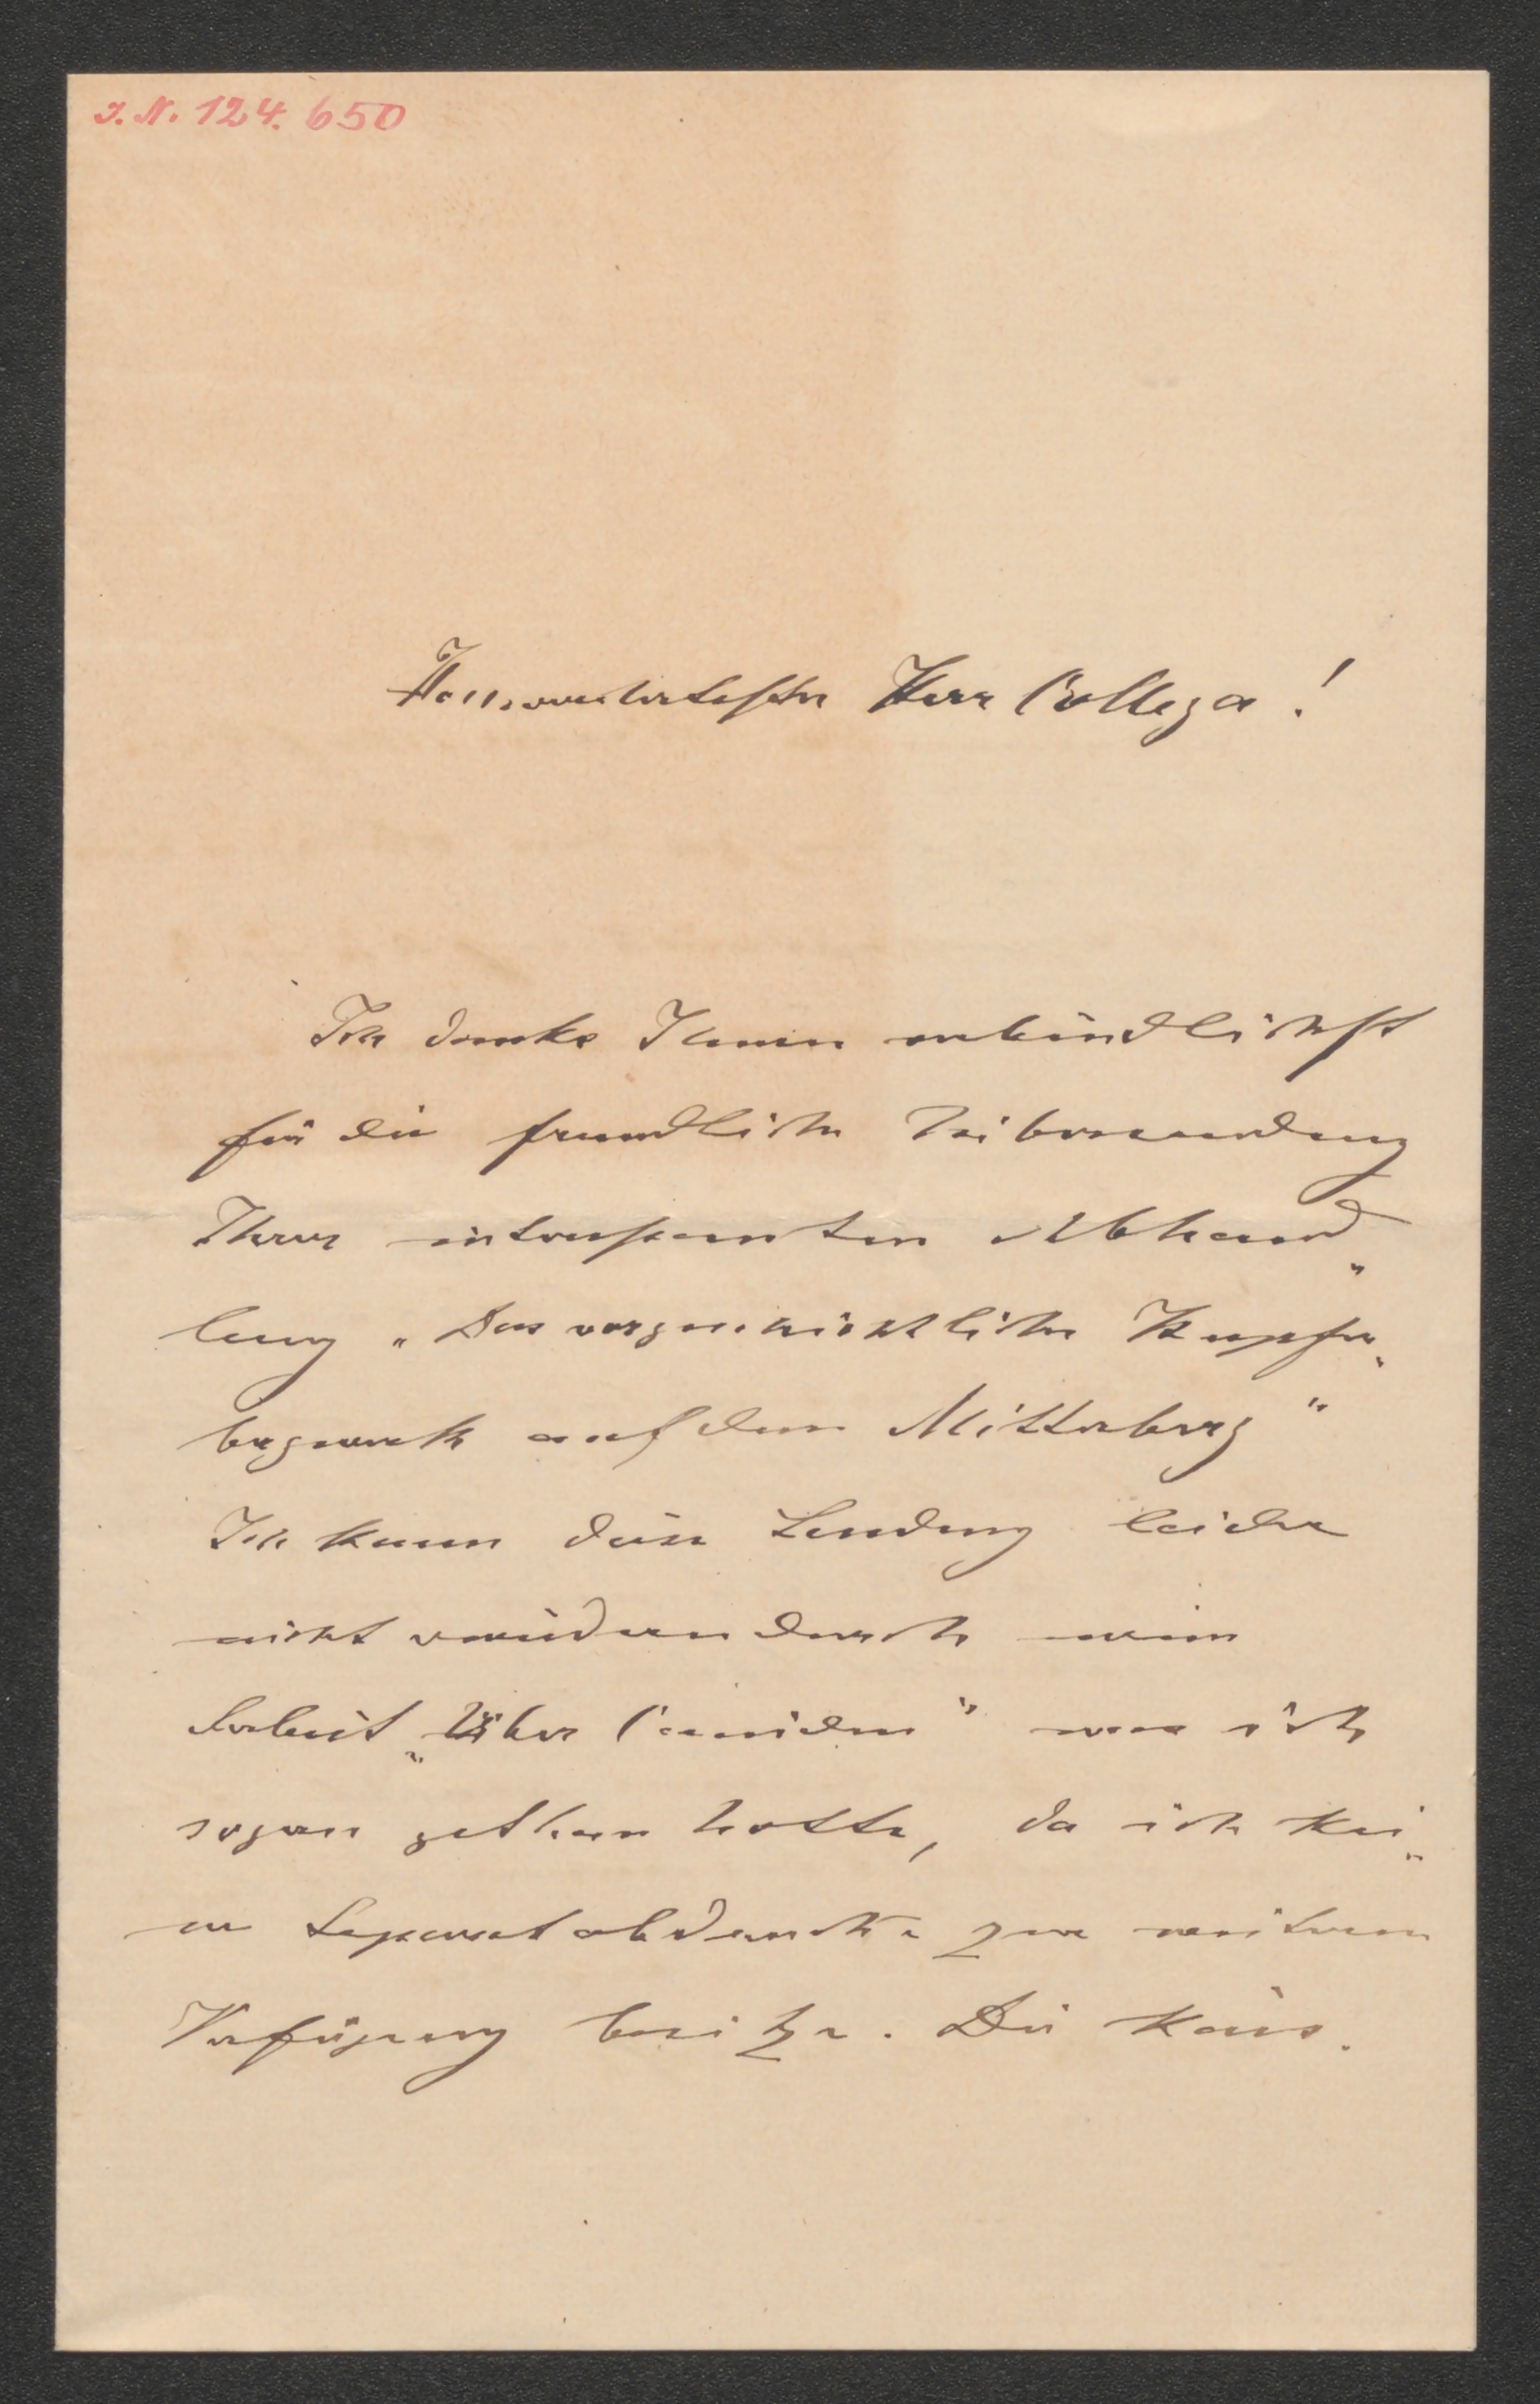 J.N. 124.650
Hochverehrtester Herr Collega!
Ich danke Ihnen verbindlichst
für die freundliche Übersendung
Ihrer interessanten Abhand„
lung „Das vorgeschichtliche Kupfer„
bergwerk auf dem Mitterberg“
Ich kann diese Sendung leider
nicht erwiedern durch meine
Arbeit „Über Caniden“ was ich
sogern gethan hätte, da ich kei„
ne Separatabdrücke zur weiteren
Verfügung besitze. Die Kais.